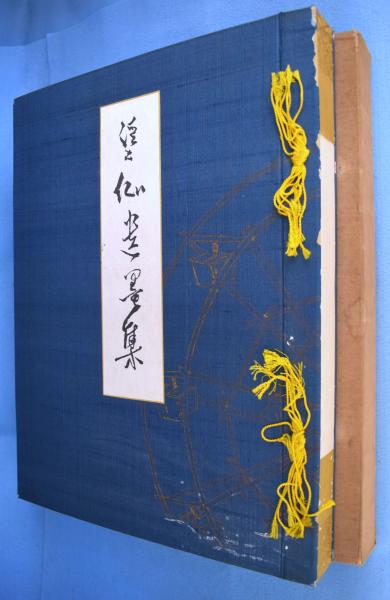 溪仙遺墨集